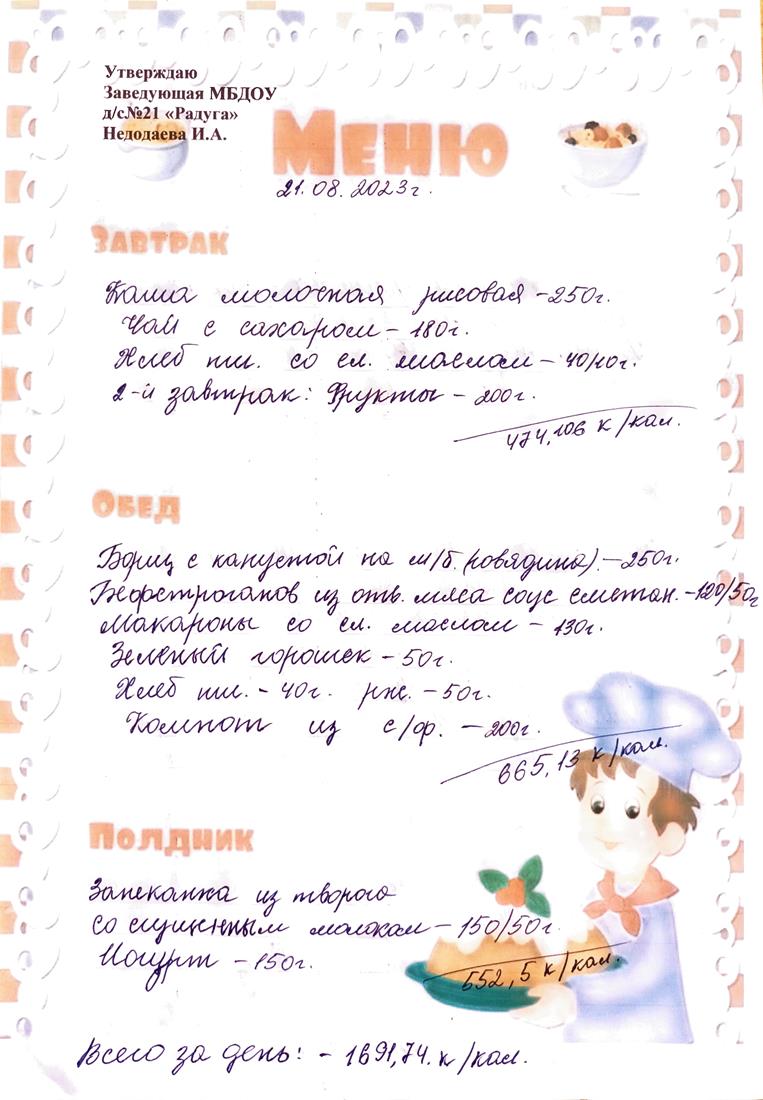 Утверждаю
Заведующая МБДОУ
д/с№21 «Радуга»
Недодаева И.А.
Меню
21.08.2023г.
Завтрак
Каша молочная рисовая - 250г.
Чай с сахаром - 180г.
Хлеб пш. со сл. маслом - 40/10г.
2-й завтрак: Фрукты - 200г.
474,106 к/кал.
Обед
Борщ с капустой на м/б.(говядина). - 250г.
Бефстроганов из отв. мяса соус сметан. - 120/50г
Макароны со сл. маслом - 130г.
Зеленый горошек - 50г.
Хлеб пш. - 40г. рж. - 50г.
Компот из с/ф. - 200г.
665,13 к/кал.
Полдник
Запеканка из творога
со сгущенным молоком - 150/50г.
Йогурт - 150г.
552,5 к/кал.
Всего за день: - 1691,74. к/кал.